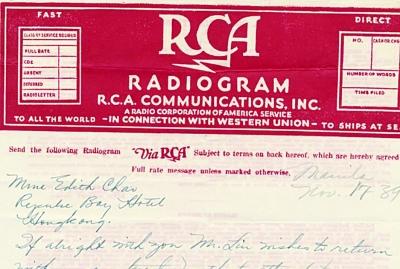 FAST
DIRECT
RCA
CLASS OF SERVICE DESIRED
FULL RATE
CDE
URGENT
DEFERRED
RADIOLETTER
NO.
CASH OR CHG
NUMBER OF WORDS
TIME FILED
RADIOGRAM
R.C.A. COMMUNICATIONS, INC.
A RADIO CORPORATION OF AMERICA SERVICE
TO ALL THE WORLD — IN CONNECTION WITH WESTERN UNION — TO SHIPS AT SE
Send the following Radiogram "Via RCA" Subject to terms on back hereof, which are hereby agreed
Full rate message unless marked otherwise.
Manila
Nov. 39
Mme Edith Chao
Repulse Bay Hotel
Hongkong.
If alright with you Mr. Liu wishes to return